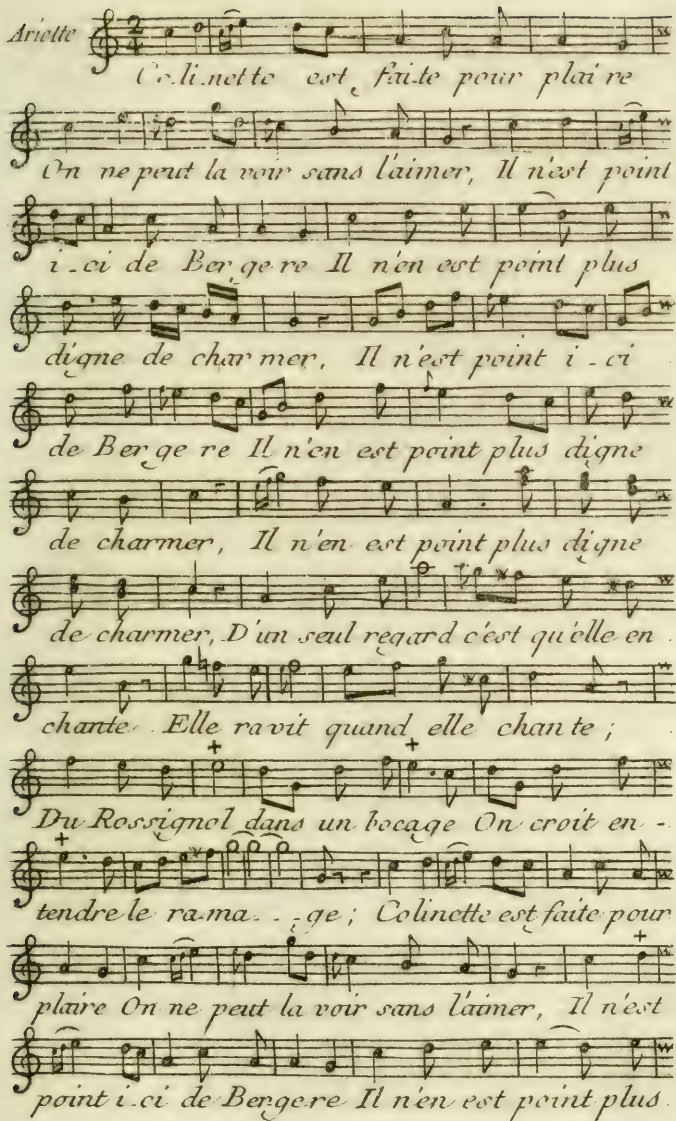 Ariette
2
4
Co.li.nette est, faite pour plai re
On ne peut la voir sans l'aimer, Il n'est point
i _ ci de Ber ge re Il n'en est point plus
digne de char mer, Il n'est point i _ ci
de Ber ge re Il n'en est point plus digne
de charmer, Il n'en est point plus digne
de charmer, D'un seul regard c'est qu'elle en
chante. Elle ravit quand elle chan te ;
Du Rossignol dans un bocage On croit en -
tendre le ra.ma _ _ ge ; Colinette est faite pour
plaire On ne peut la voir sans l'aimer, Il n'est
point i.ci de Ber.ge.re Il n'en est point plus.